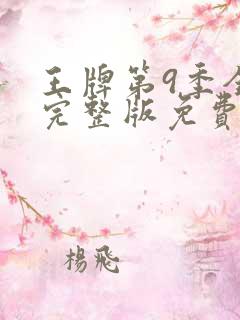 王牌第9季全
完整版免费
杨飞